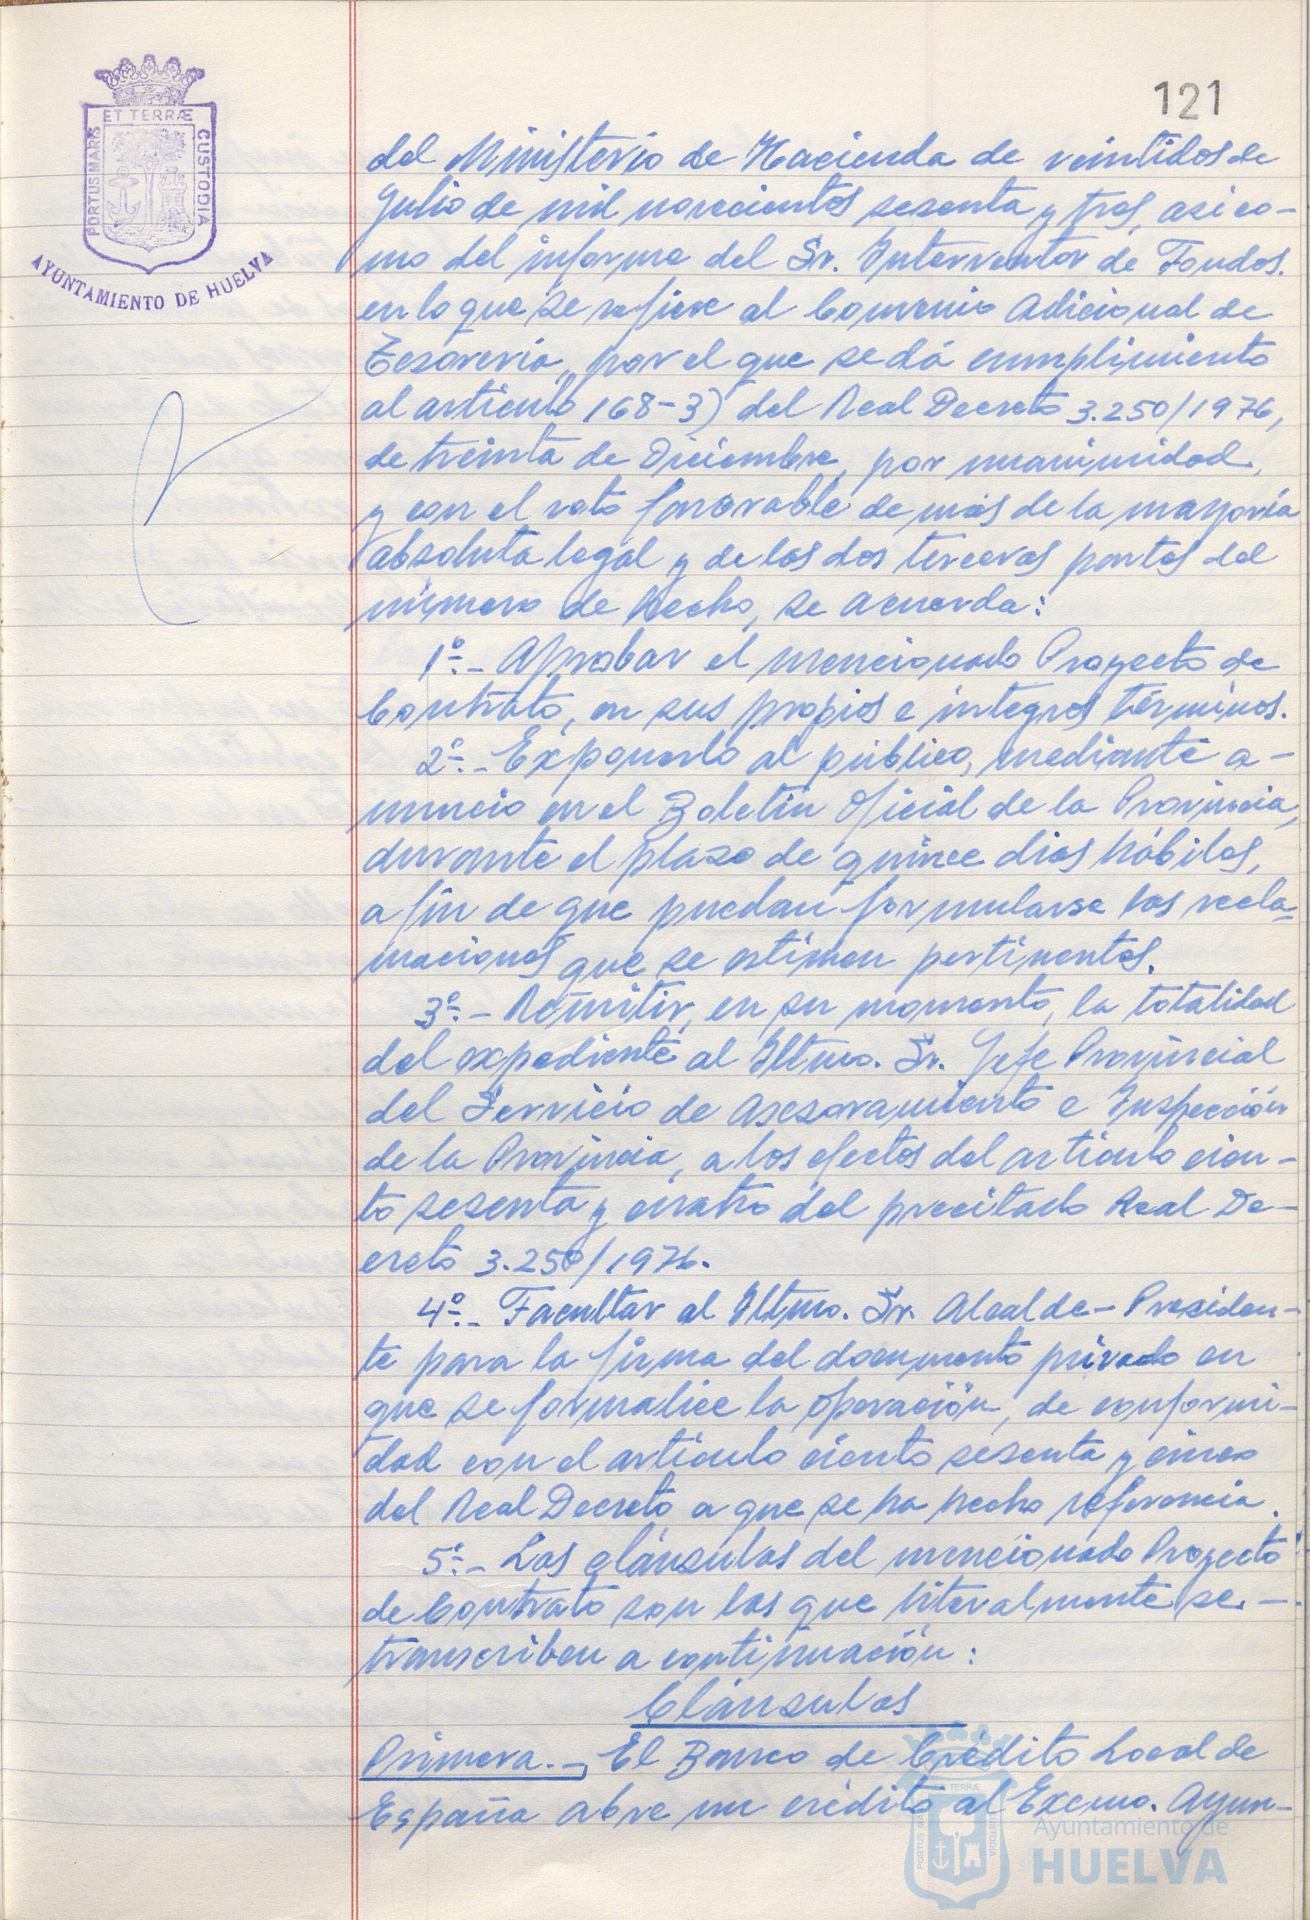 121
ET TERRÆ
PORTUS MARIS
CUSTODIA
AYUNTAMIENTO DE HUELVA
del Ministerio de Hacienda de veintidos de
Julio de mil novecientos sesenta y tres, asi co-
mo del informe del Sr. Interventor de Fondos.
en lo que se refiere al Convenio Adicional de
Tesorería, por el que se dá cumplimiento
al artículo 168-3) del Real Decreto 3.250/1976,
de treinta de Diciembre, por unanimidad,
y con el voto favorable de más de la mayoría
absoluta legal y de las dos terceras partes del
número de hecho, se acuerda:
1º.- Aprobar el mencionado Proyecto de
Contrato, en sus propios e integros términos.
2º.- Exponerlo al público, mediante a-
nuncio en el Boletin Oficial de la Provincia,
durante el plazo de quince dias hábiles,
a fin de que puedan formularse las recla-
maciones que se estimen pertinentes.
3º.- Remitir, en su momento, la totalidad
del expediente al Iltmo. Sr. Jefe Provincial
del Servicio de Asesoramiento e Inspección
de la Provincia, a los efectos del artículo cien-
to sesenta y cuatro del precitado Real De-
creto 3.250/1976.
4º.- Facultar al Iltmo. Sr. Alcalde-Presiden-
te para la firma del documento privado en
que se formalice la operación, de conformi-
dad con el artículo ciento sesenta y cinco
del Real Decreto a que se ha hecho referencia.
5º.- Las cláusulas del mencionado Proyecto
de Contrato son las que literalmente se.-
transcriben a continuación:
Cláusulas
Primera.- El Banco de Crédito Local de
España abre un crédito al Excmo. Ayun-
Ayuntamiento de
HUELVA